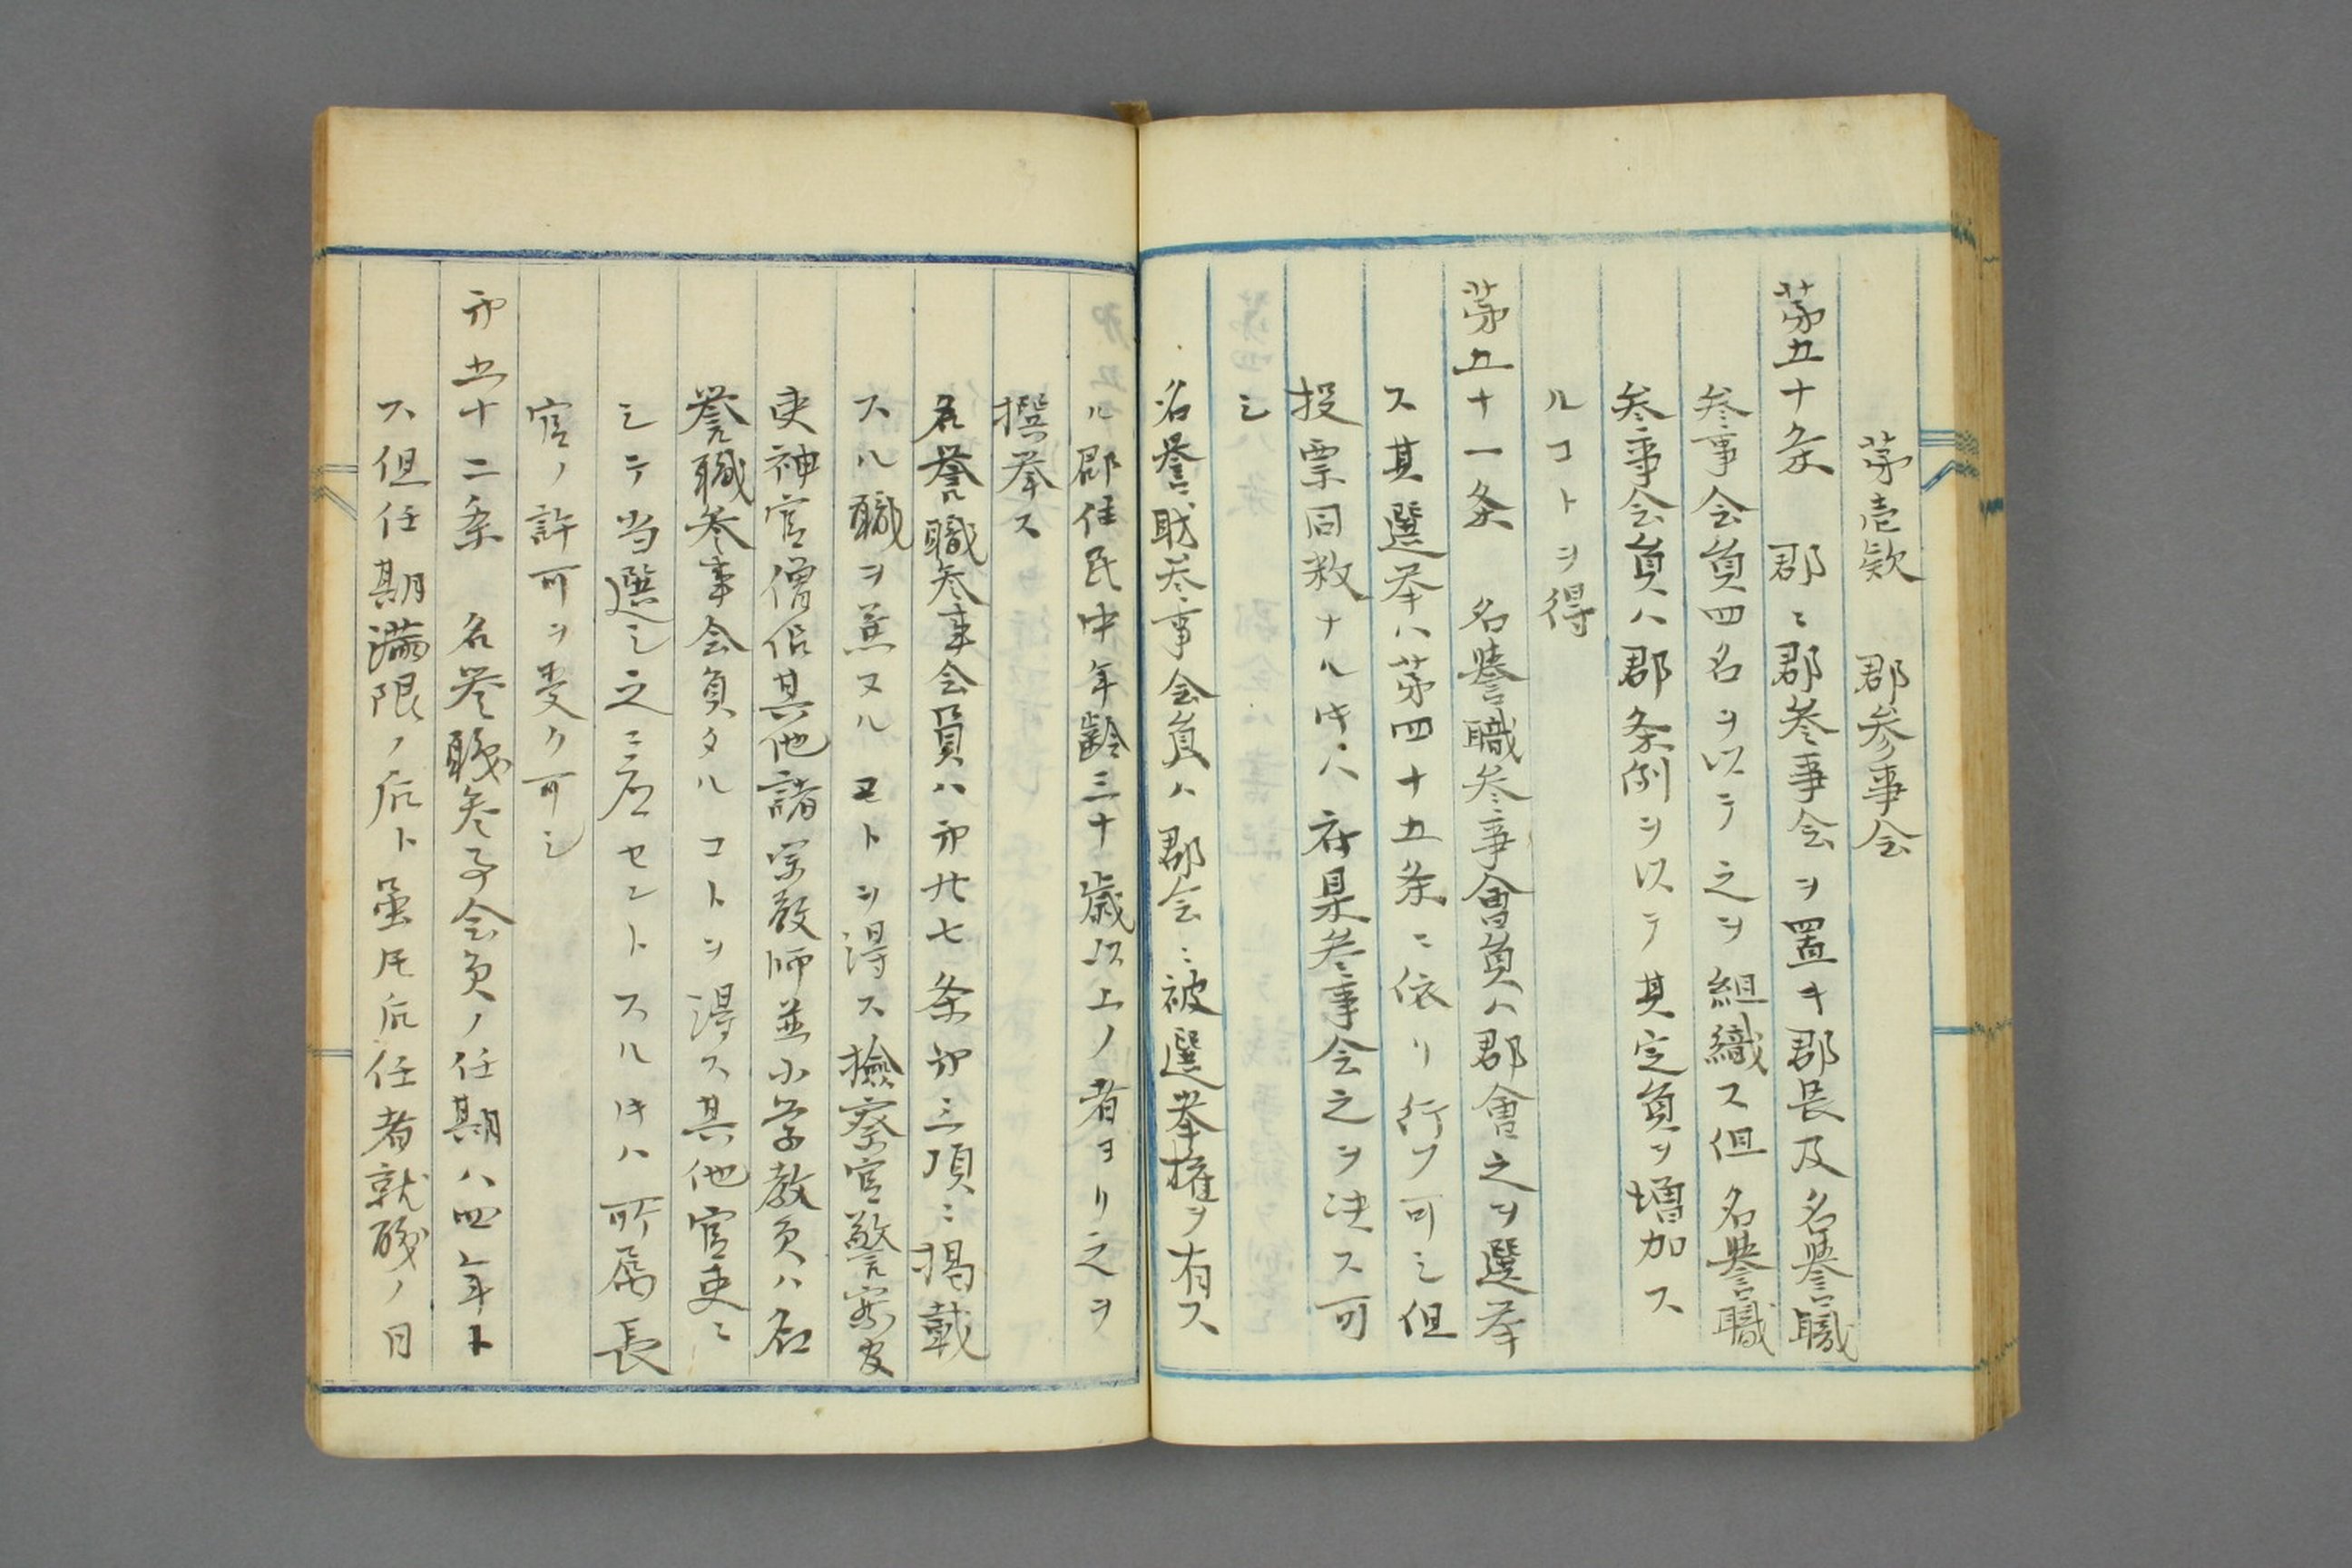 第壱欵　郡参事会
第五十条　郡ニ郡参事会ヲ置キ郡長及名誉職
参事会員四名ヲ以テ之ヲ組織ス但名誉職
参事会員ハ郡条例ヲ以テ其定員ヲ増加ス
ルコトヲ得
第五十一条　名誉職参事會員ハ郡會之ヲ選挙
ス其選挙ハ第四十五条ニ依リ行フ可シ但
投票同数ナルキハ府県参事会之ヲ决ス可
シ
名誉職参事会員ハ郡会ニ被選挙権ヲ有ス
ル郡住民中年齢三十歳以上ノ者ヨリ之ヲ
撰挙ス
名誉職参事会員ハ㐧廿七条㐧三項ニ掲載
スル職ヲ兼ヌルコトヲ得ス撿察官警察官
吏神官僧侶其他諸宗教師並小学教員ハ名
誉職参事会員タルコトヲ得ス其他官吏ニ
シテ当選シ之ニ應セントスルキハ所属長
官ノ許可ヲ受ク可シ
㐧五十二条　名誉職参事会員ノ任期ハ四年ト
ス但任期満限ノ后ト虽𪜈后任者就職ノ日